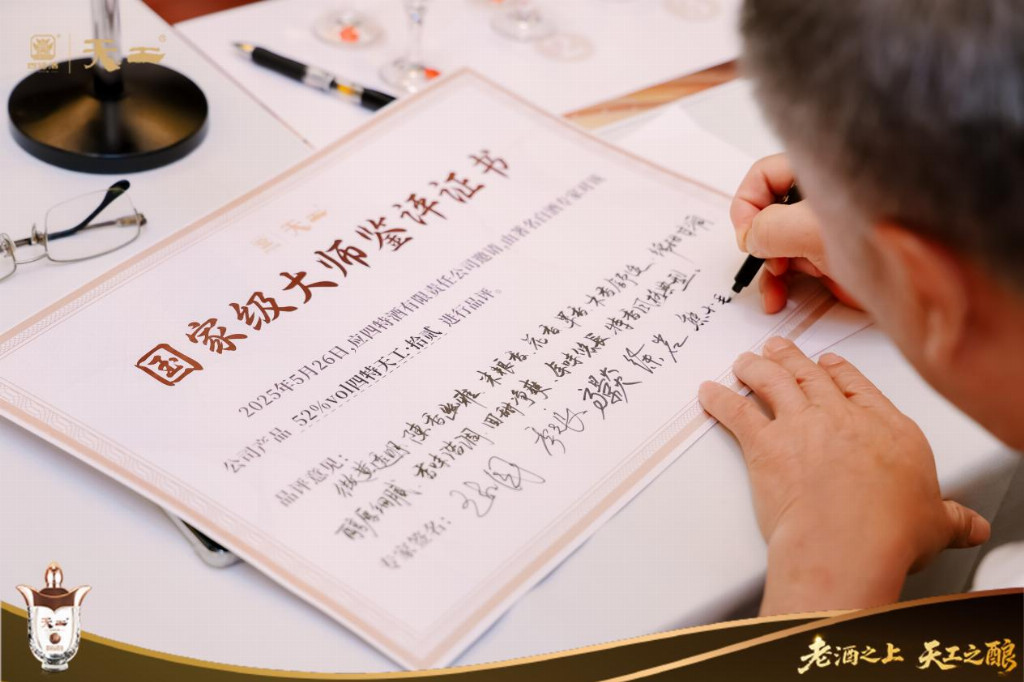 天工
天工
国家级大师鉴评证书
2025年5月26日,应四特酒有限责任公司邀请,由著名白酒专家对该
公司产品 52%vol四特天工·拾贰 进行品评。
品评意见:
微黄透明 陈香幽雅 米粮香、花香、果香、木香舒适
醇厚细腻、香味谐调 回甜净爽、后味悠长 特香风格典型
专家签名:
天工
老酒之上 天工之酿